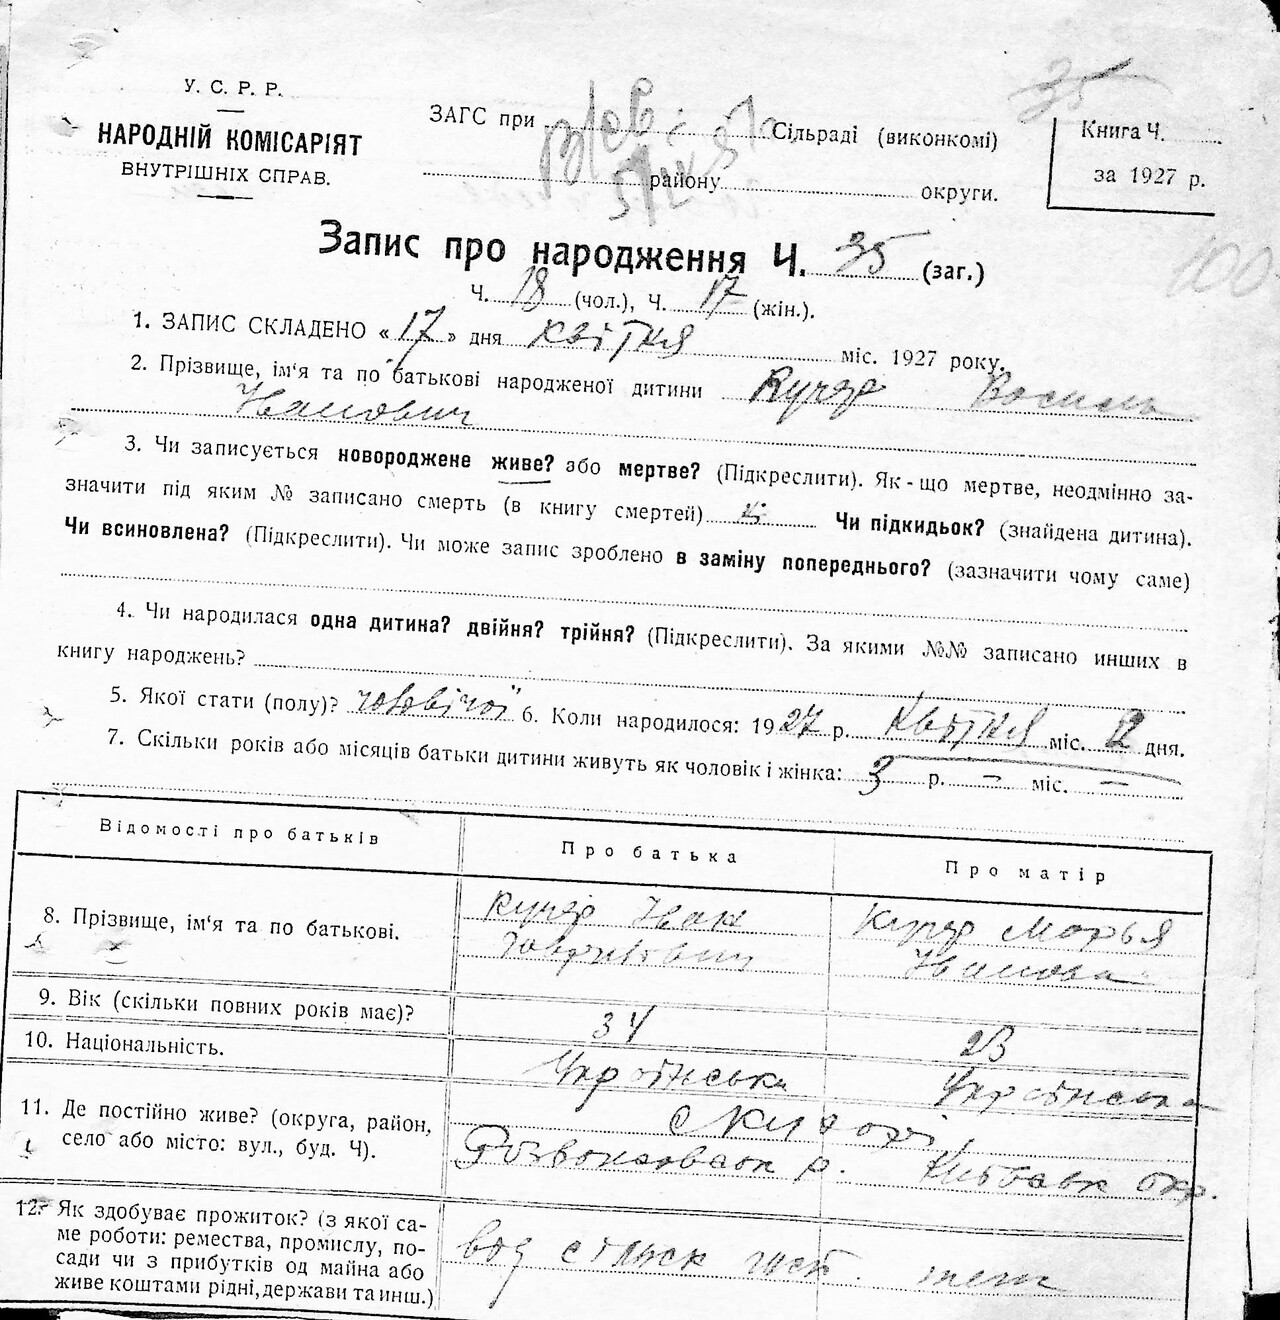 У. С. Р. Р.
НАРОДНІЙ КОМІСАРІЯТ
ВНУТРІШНІХ СПРАВ.
35
ЗАГС при Сільраді (виконкомі)
району округи.
Книга Ч.
за 1927 р.
100
Запис про народження Ч. 35 (заг.)
Ч. 18 (чол.), Ч. 17 (жін.).
1. ЗАПИС СКЛАДЕНО « 17 » дня квітня міс. 1927 року.
2. Прізвище, ім'я та по батькові народженої дитини Кучер Василь
Іванович
3. Чи записується новороджене живе? або мертве? (Підкреслити). Як-що мертве, неодмінно за-
значити під яким № записано смерть (в книгу смертей) Чи підкидьок? (знайдена дитина).
Чи всиновлена? (Підкреслити). Чи може запис зроблено в заміну попереднього? (зазначити чому саме)
4. Чи народилася одна дитина? двійня? трійня? (Підкреслити). За якими №№ записано инших в
книгу народжень?
5. Якої стати (полу)? чоловічої 6. Коли народилося: 1927 р. Квітня міс. 2 дня.
7. Скільки років або місяців батьки дитини живуть як чоловік і жінка: 3 р. — міс. —
Відомості про батьків Про батька Про матір
8. Прізвище, ім'я та по батькові. Кучер Іван Кучер Марья
Іванова
9. Вік (скільки повних років має)? 34 23
10. Національність. Українська Українська
11. Де постійно живе? (округа, район,
село або місто: вул., буд. Ч).
р. Київськ окр.
12. Як здобуває прожиток? (з якої са-
ме роботи: ремества, промислу, по-
сади чи з прибутків од майна або
живе коштами рідні, держави та инш.)
від сільск госп. теж